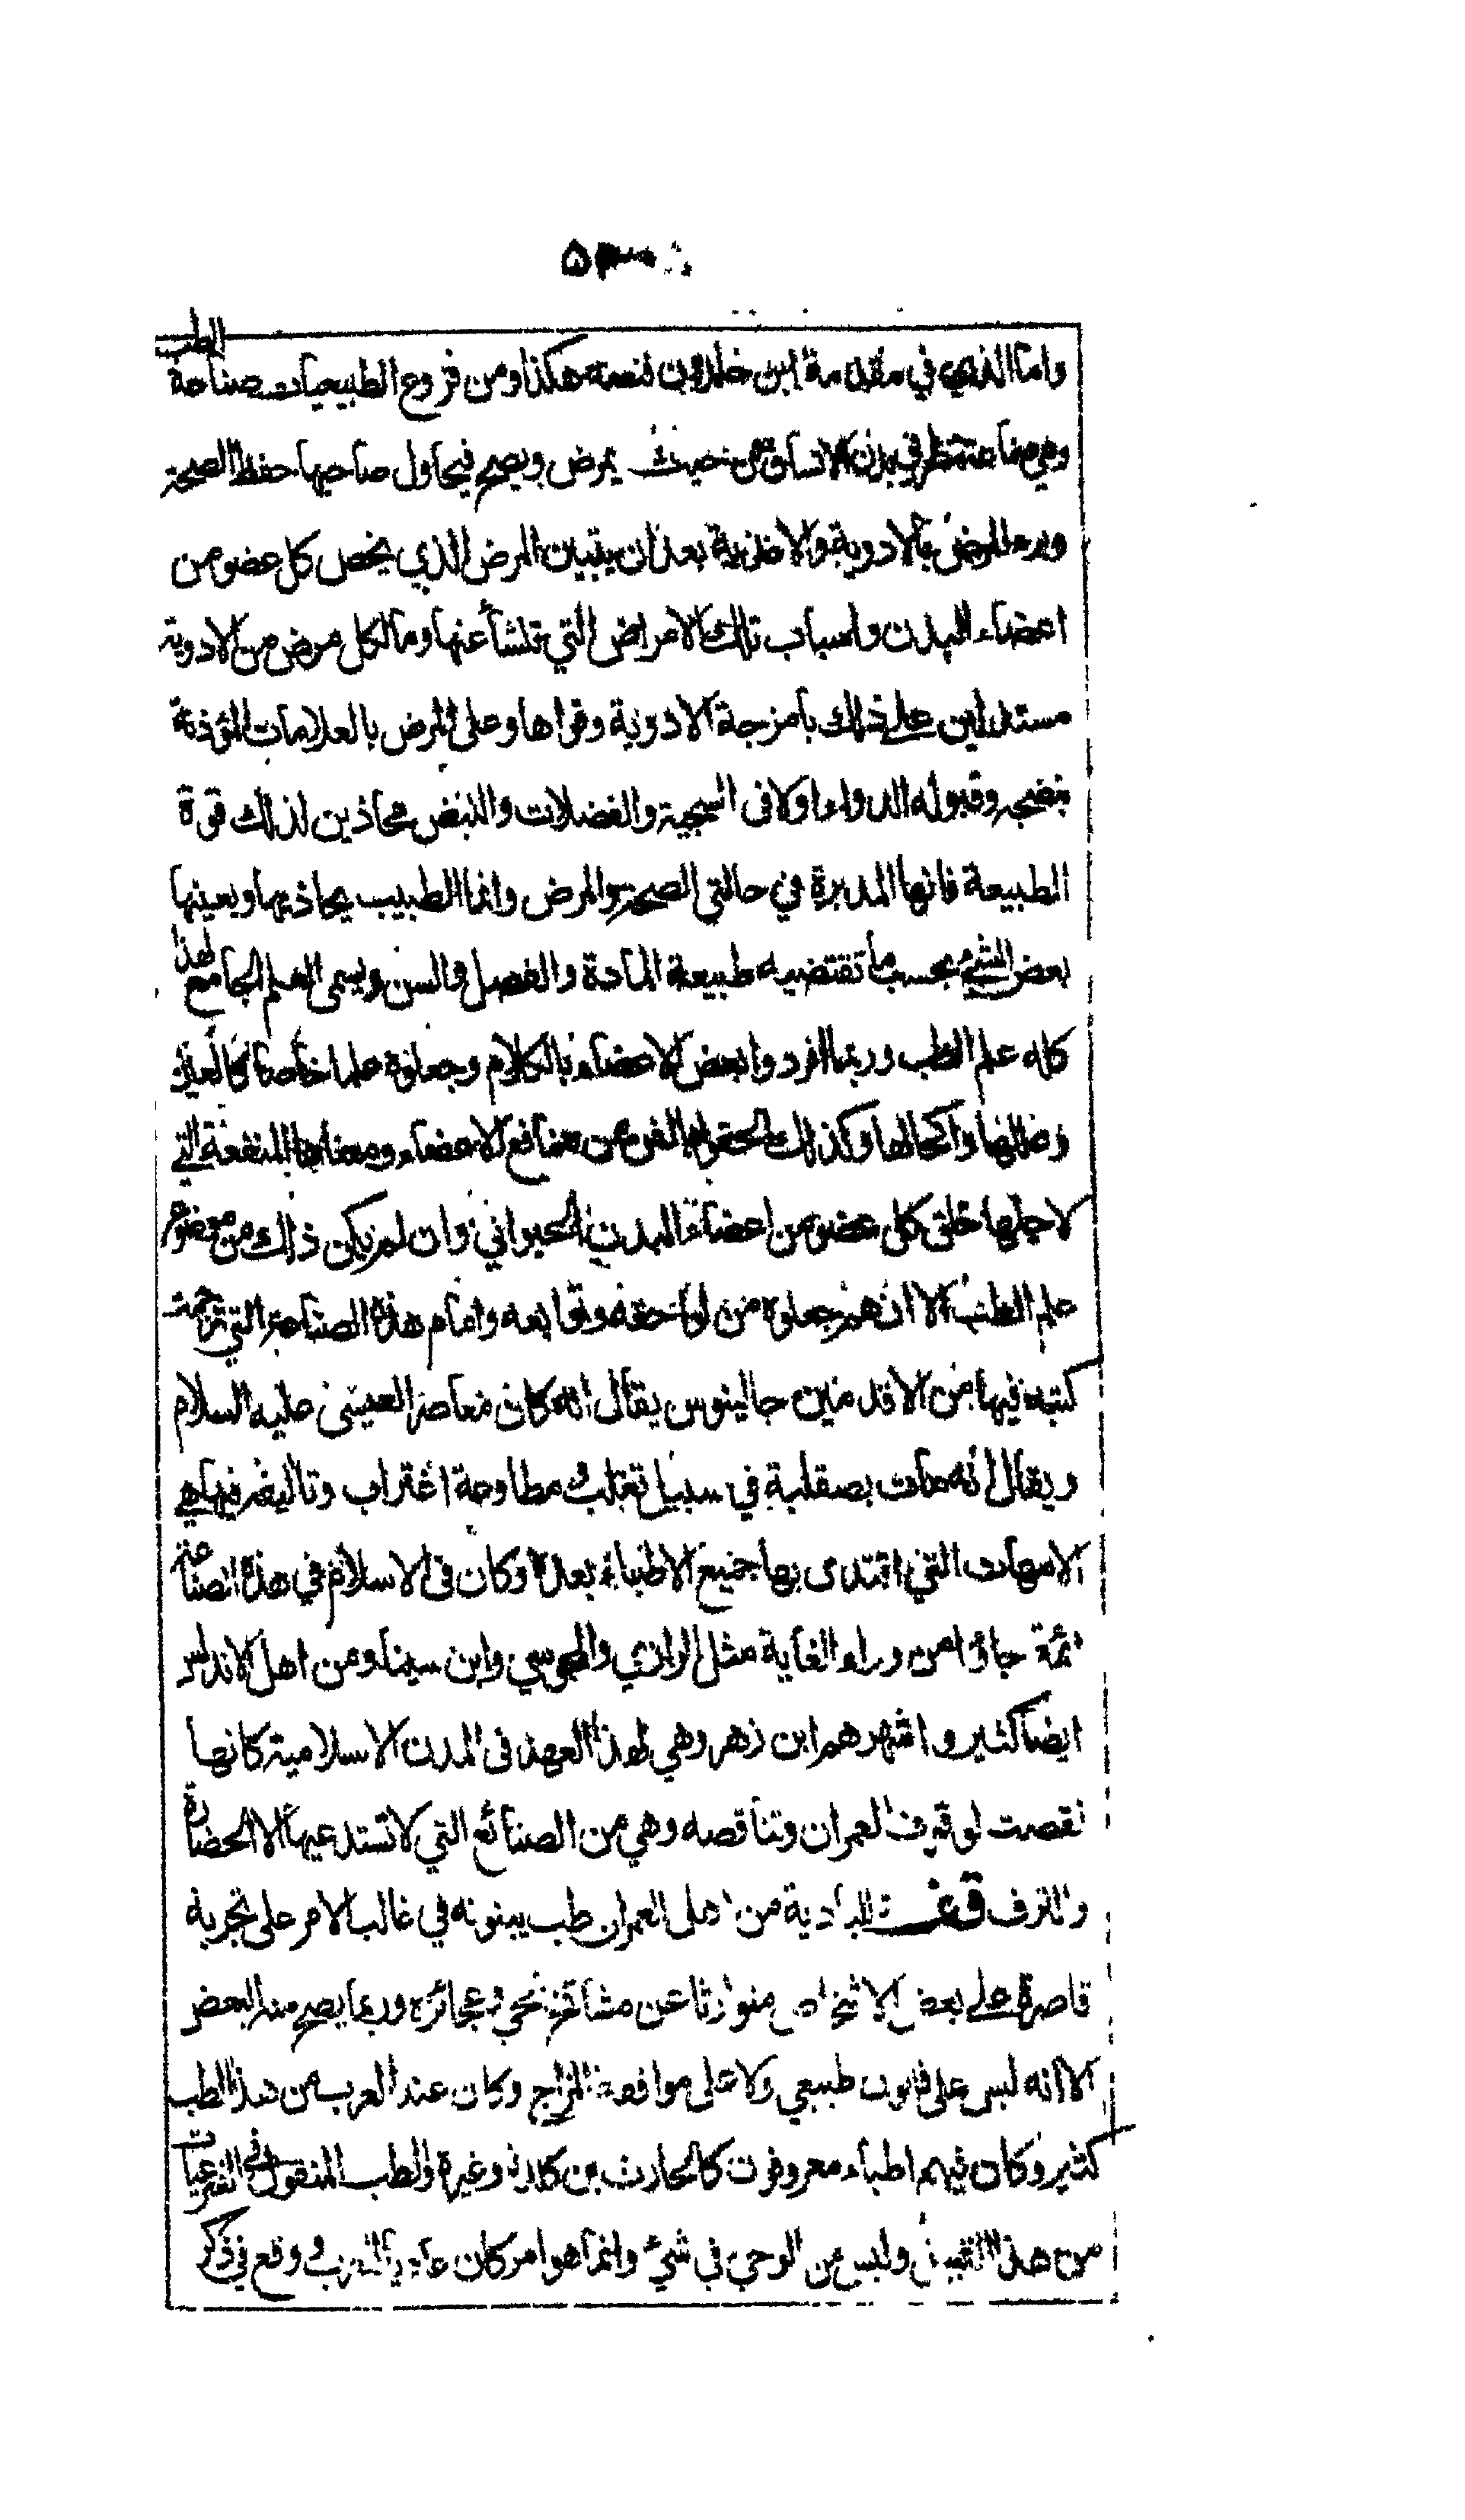 واما الذي في مقدمة ابن خلدون فنصه هكذا ومن فروع الطبيعيات صناعة الطب
وهي صناعة تنظر في بدن الانسان من حيث يمرض ويصح فيحاول صاحبها حفظ الصحة
وبرء المرض بالادوية والاغذية بعد ان يتبين المرض الذي يخص كل عضو من
اعضاء البدن واسباب تلك الامراض التي تنشأ عنها وما لكل مرض من الادوية
مستدلين على ذلك بامزجة الادوية وقواها وعلى المرض بالعلامات المؤذنة
بنضجه وقبوله الدواء اولا فى السجية والفضلات والنبض محاذين لذلك قوة
الطبيعة فانها المدبرة في حالتي الصحة والمرض وانما الطبيب يحاذيها ويعينها
بعض الشئ بحسب ما تقتضيه طبيعة المادة والفصل والسن ويسمى العلم الجامع لهذا
كله علم الطب وربما افردوا بعض الاعضاء بالكلام وجعلوه علما خاصا كالعين
وعللها واكحالها وكذلك الحقوا بالفن من منافع الاعضاء ومعناها المنفعة التي
لاجلها خلق كل عضو من اعضاء البدن الحيواني وان لم يكن ذلك من موضوع
علم الطب الا انهم جعلوه من لواحقه وتوابعه وامام هذه الصناعة التي ترجمت
كتبه فيها من الاقدمين جالينوس يقال انه كان معاصرا لعيسى عليه السلام
ويقال انه مات بصقلية في سبيل تغلب ومطاوعة اغتراب وتاليفه فيها هي
الامهات التي اقتدى بها جميع الاطباء بعده وكان فى الاسلام في هذه الصناعة
ئمة جاؤا من وراء الغاية مثل الرازي والمجوسي وابن سينا ومن اهل الاندلس
ايضا كثير واشهرهم ابن زهر وهي لهذا العهد فى المدن الاسلامية كانها
نقصت لوقوف العمران وتناقصه وهي من الصنائع التي لا تستدعيها الا الحضارة
والترف قف للبادية من اهل العمران طب يبنونه في غالب الامر على تجربة
قاصرة على بعض الاشخاص متوارثا عن مشائخ الحي وعجائزه وربما يصح منه البعض
الا انه ليس على قانون طبيعي ولا على موافقة المزاج وكان عند العرب من هذا الطب
كثير وكان فيهم اطباء معروفون كالحارث بن كلدة وغيرة والطب المنقول في الشرعيات
من هذا القبيل وليس من الوحي في شئ وانما هو امر كان عاديا للعرب ووقع في ذكر